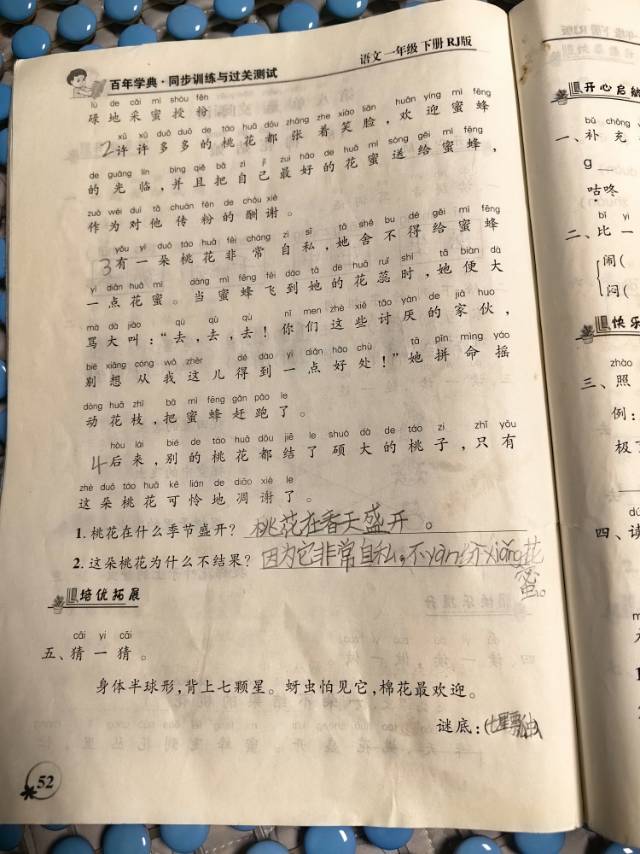 百年学典·同步训练与过关测试
语文 一年级 下册 RJ版
lù de cǎi mì shòu fěn
碌地采蜜授粉。
xǔ xǔ duō duō de táo huā dōu zhāng zhe xiào liǎn huān yíng mì fēng
2许许多多的桃花都张着笑脸,欢迎蜜蜂
de guāng lín bìng qiě bǎ zì jǐ zuì hǎo de huā mì sòng gěi mì fēng
的光临,并且把自己最好的花蜜送给蜜蜂,
zuò wéi duì tā chuán fěn de chóu xiè
作为对他传粉的酬谢。
yǒu yì duǒ táo huā fēi cháng zì sī tā shě bu dé gěi mì fēng
3有一朵桃花非常自私,她舍不得给蜜蜂
yì diǎn huā mì dāng mì fēng fēi dào tā de huā ruǐ shí tā biàn dà
一点花蜜。当蜜蜂飞到她的花蕊时,她便大
mà dà jiào qù qù qù nǐ men zhè xiē tǎo yàn de jiā huo
骂大叫:“去,去,去!你们这些讨厌的家伙,
bié xiǎng cóng wǒ zhèr dé dào yì diǎn hǎo chù tā pīn mìng yáo
别想从我这儿得到一点好处!”她拼命摇
dòng huā zhī bǎ mì fēng gǎn pǎo le
动花枝,把蜜蜂赶跑了。
hòu lái bié de táo huā dōu jiē le shuò dà de táo zi zhǐ yǒu
4后来,别的桃花都结了硕大的桃子,只有
zhè duǒ táo huā kě lián de diāo xiè le
这朵桃花可怜地凋谢了。
1. 桃花在什么季节盛开? 桃花在春天盛开。
2. 这朵桃花为什么不结果? 因为它非常自私。不yàn分xiǎng花
蜜。
培优拓展
cāi yi cāi
五、猜一猜。
身体半球形,背上七颗星。蚜虫怕见它,棉花最欢迎。
谜底:(七星瓢虫)
52
开心启航
bǔ chōng
一、补充
g
咕咚
bǐ yi
二、比一
闹(
闷(
快乐
zhào
三、照
例:
极了
dú
四、读